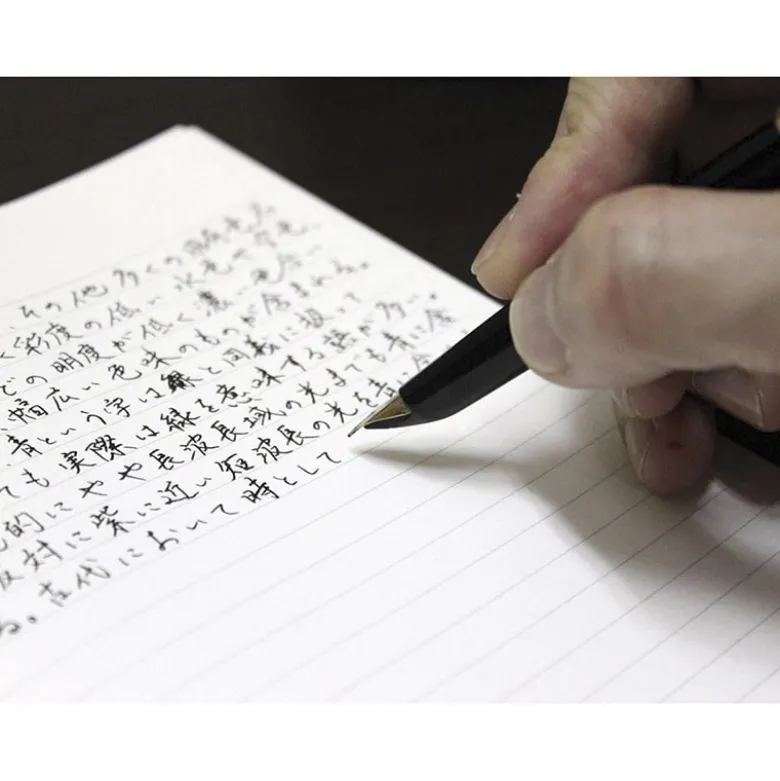 その他多くの同系色
く彩度の低い水色や空色、
どの明度が低く濃い色合い
幅広い色味のものが含まれる。
青という字は緑と同義に扱って
ても実際は緑を意味する語が多い。
的にやや長波長域の光までも青に含
反対に紫に近い短波長の光を青
る。古代において時として